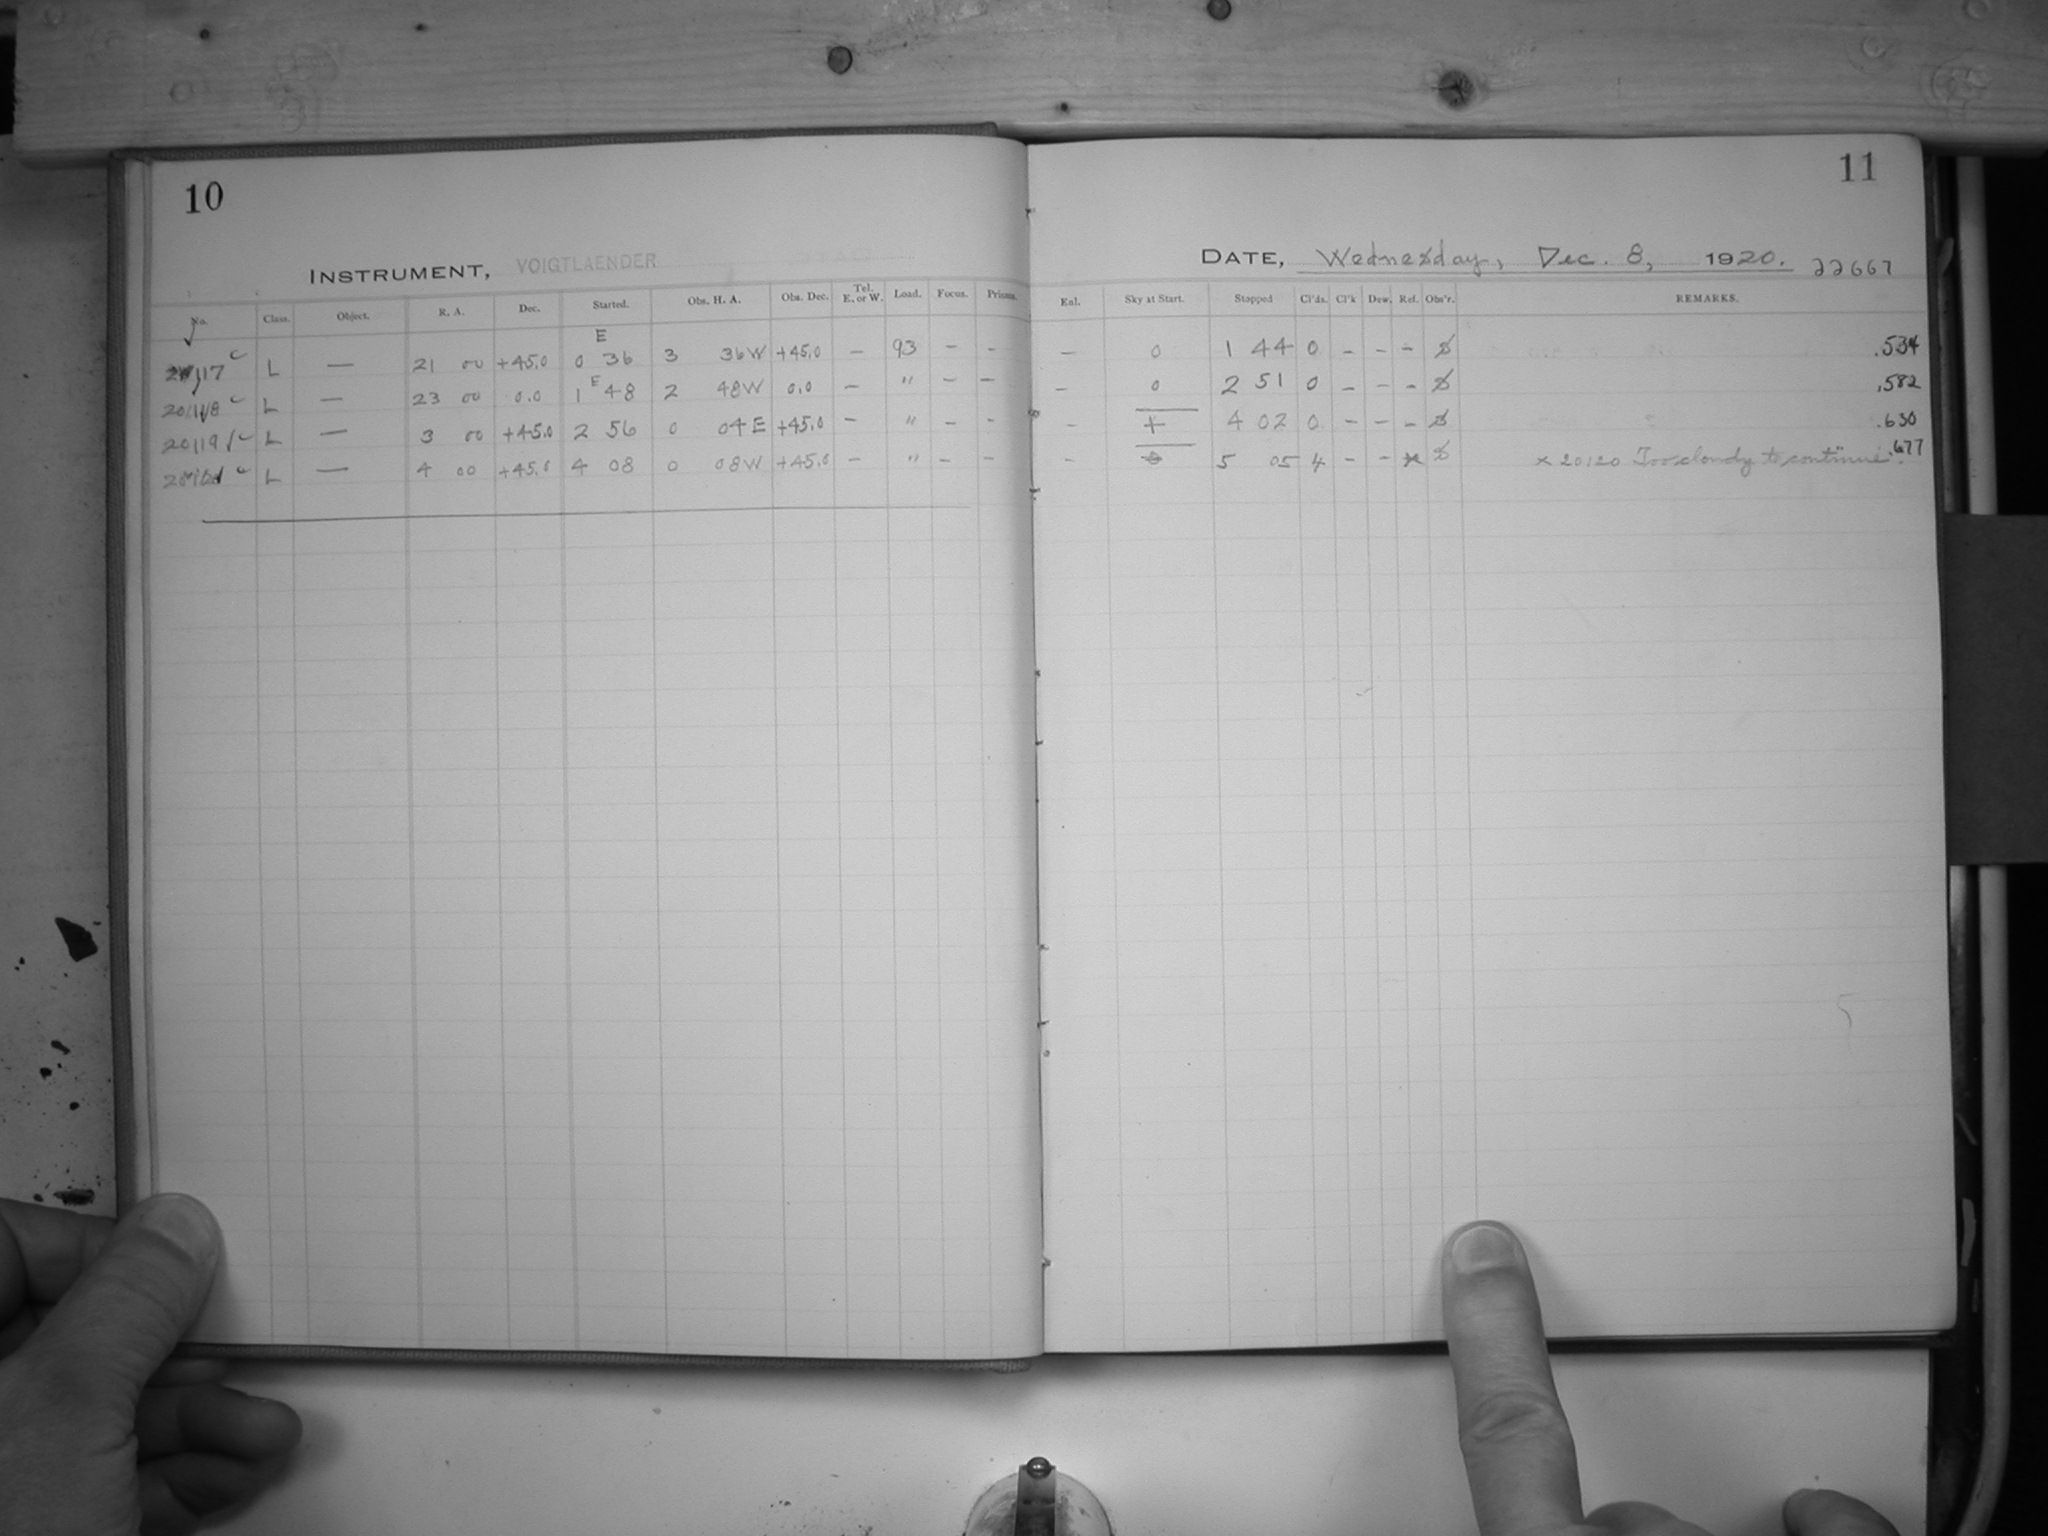 10
INSTRUMENT, VOIGTLAENDER
No. Class. Object. R. A. Dec. Started. Obs. H. A. Obs. Dec. Tel. E. or W. Load. Focus. Prisms.
E
20117 c L — 21 00 +45.0 0 36 3 36W +45.0 — 93 - -
20118 c L — 23 00 0.0 1 E 48 2 48W 0.0 — " - -
20119 c L — 3 00 +45.0 2 56 0 04E +45.0 - " - -
20120 c L — 4 00 +45.0 4 08 0 08W +45.0 - " - -
11
DATE, Wednesday, Dec. 8, 1920. 22667
Exl. Sky at Start. Stopped Cl'ds. Cl'k Dew. Ref. Obs'r. REMARKS.
— 0 1 44 0 - - - .534
— 0 2 51 0 - - - .582
- + 4 02 0 - - - .630
- 5 05 4 - - x x 20120 Too cloudy to continue. .677